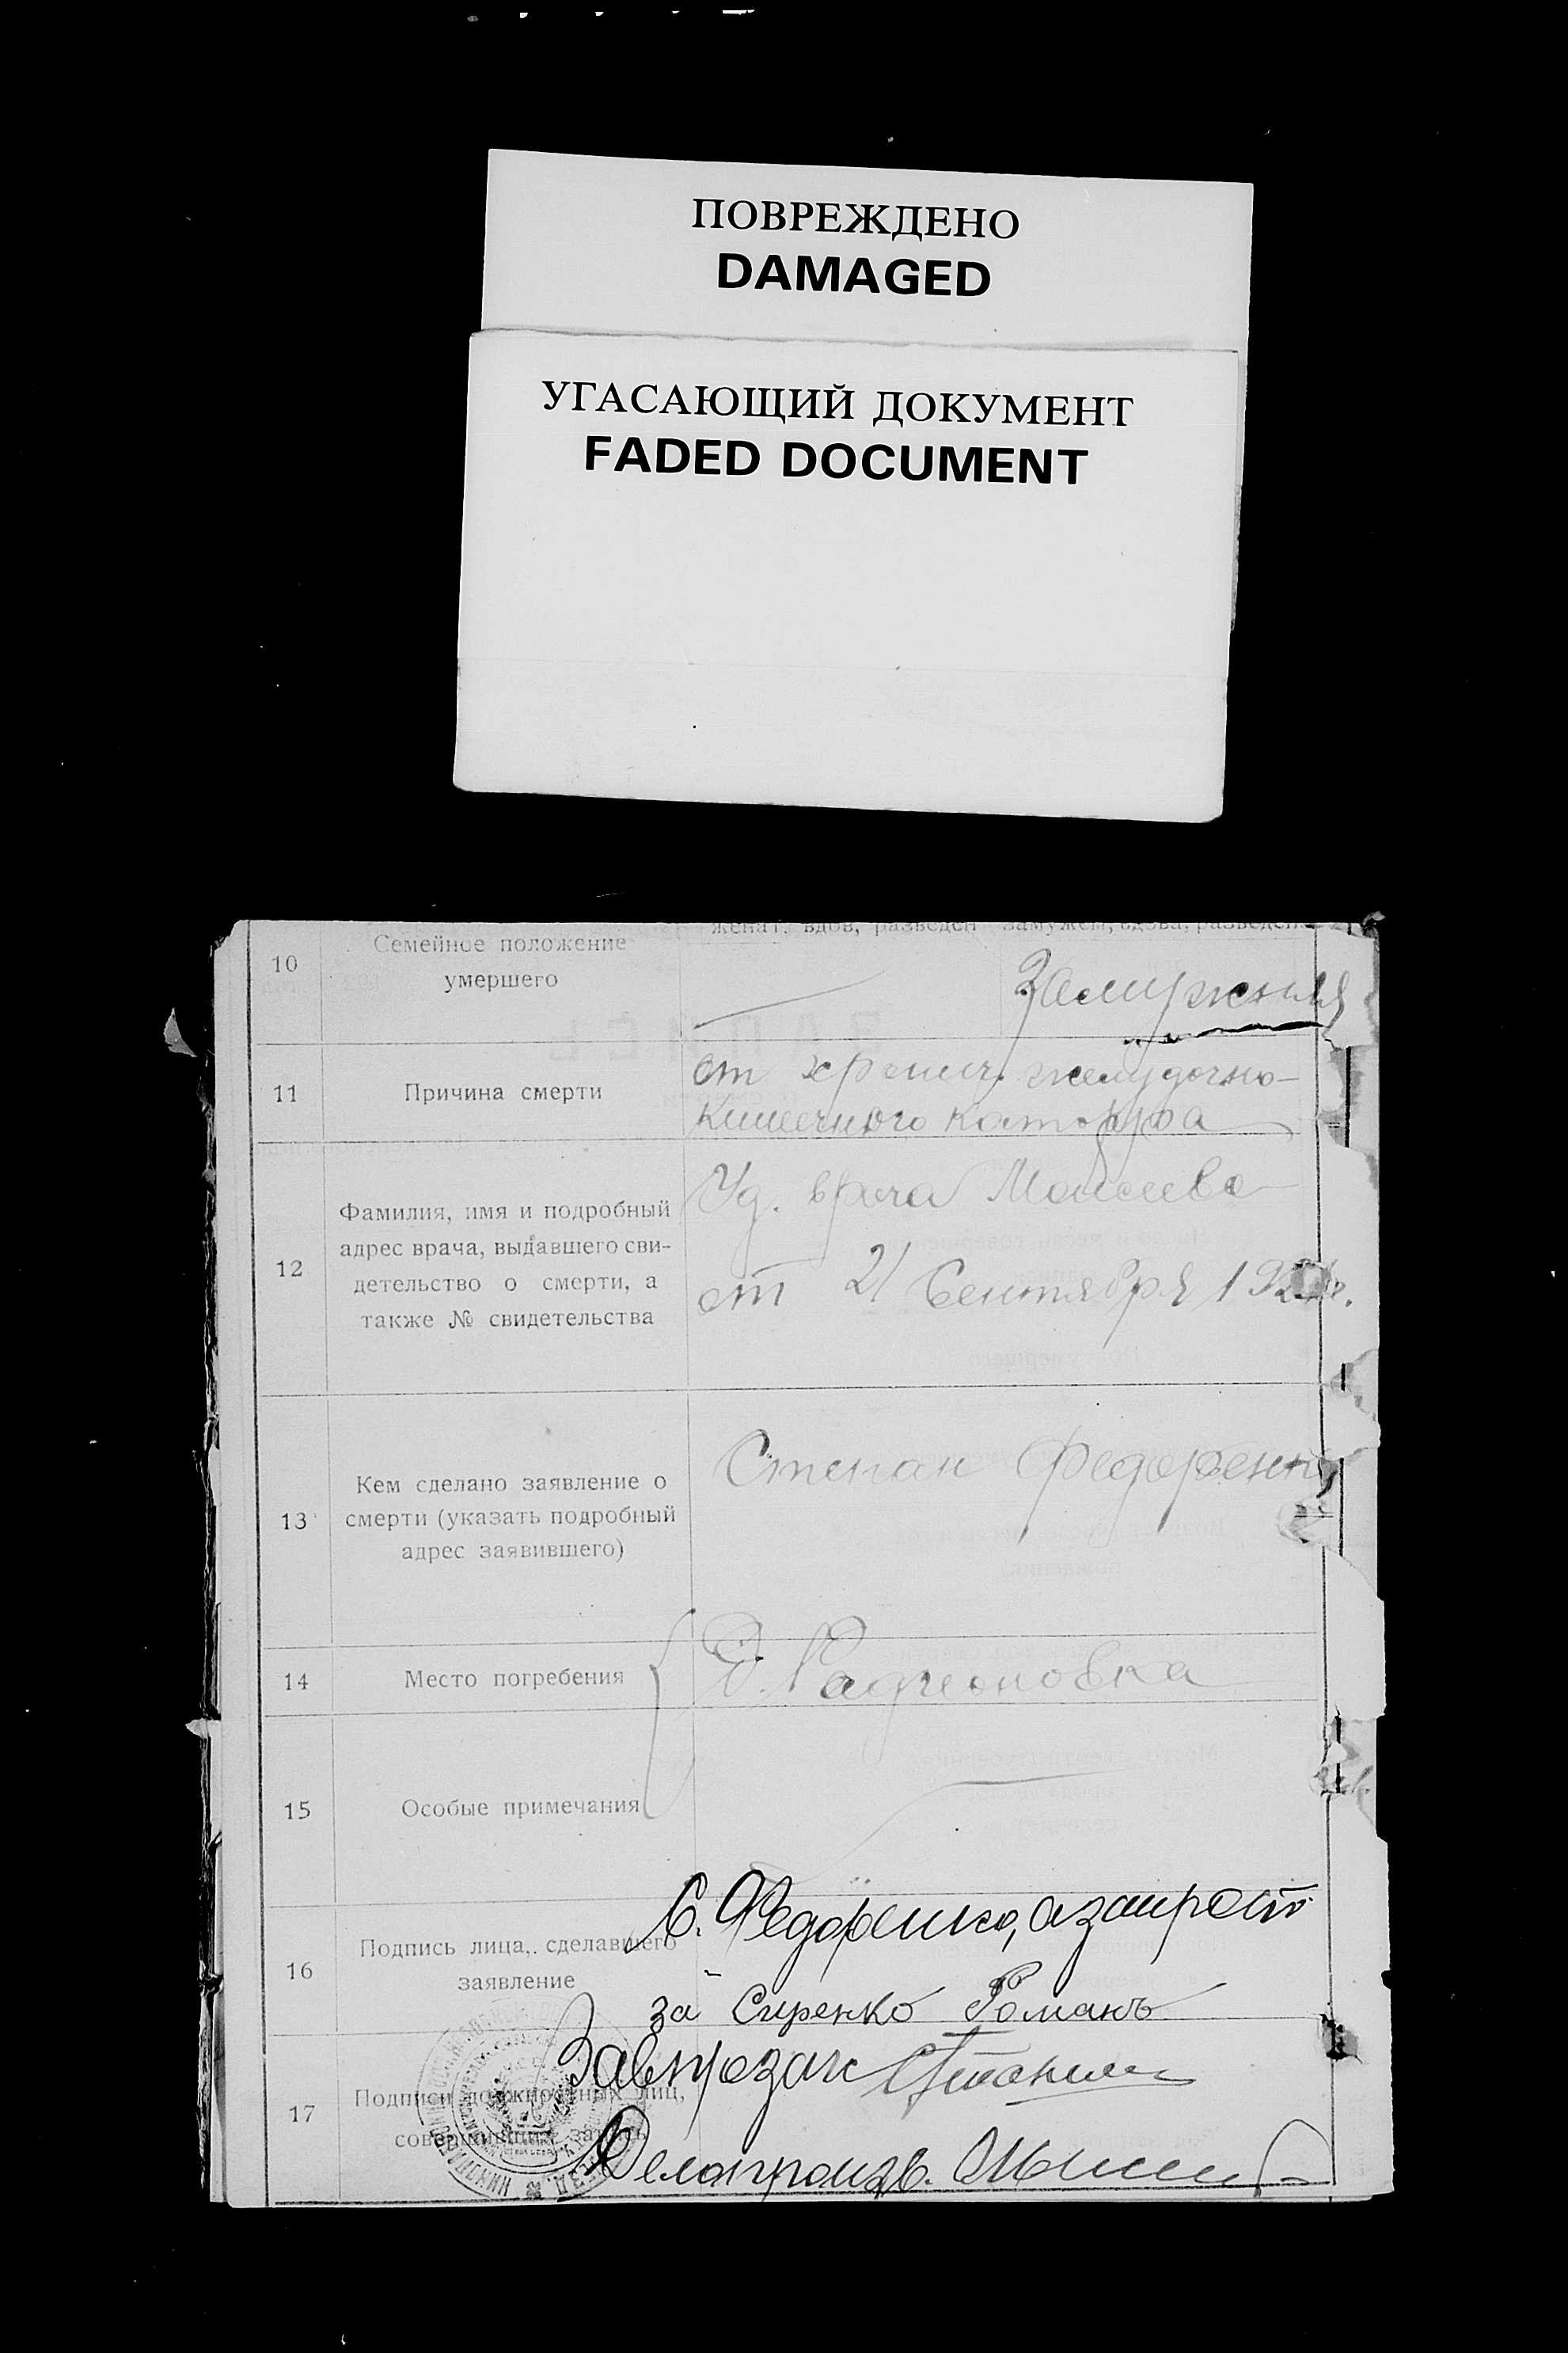 ПОВРЕЖДЕНО
DAMAGED
УГАСАЮЩИЙ ДОКУМЕНТ
FADED DOCUMENT
женат, вдов, разведен замужем, вдова, разведен
10
Семейное положение
умершего
Замужняя
11
Причина смерти
от хронич. желудочно-
кишечного катарра
12
Фамилия, имя и подробный
адрес врача, выдавшего сви-
детельство о смерти, а
также № свидетельства
Уд. врача Моисеева
от 21 Сентября
13
Кем сделано заявление о
смерти (указать подробный
адрес заявившего)
Степан Федоренко
14
Место погребения
Радионовка
15
Особые примечания
16
Подпись лица, сделавшего
заявление
С. Федоренко, а
за Сиренко Романъ
17
Подписи должностных лиц,
совершивших запись
Завпозаг
Делопроизв.